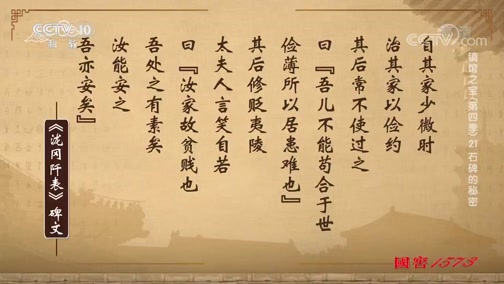 CCTV 10
科教
CCTV.com
自其家少微时
治其家以俭约
其后常不使过之
曰『吾儿不能苟合于世
俭薄所以居患难也』
其后修贬夷陵
太夫人言笑自若
曰『汝家故贫贱也
吾处之有素矣
汝能安之
吾亦安矣』
《泷冈阡表》碑文
镇馆之宝（第四季）21 石碑的秘密
國窖1573